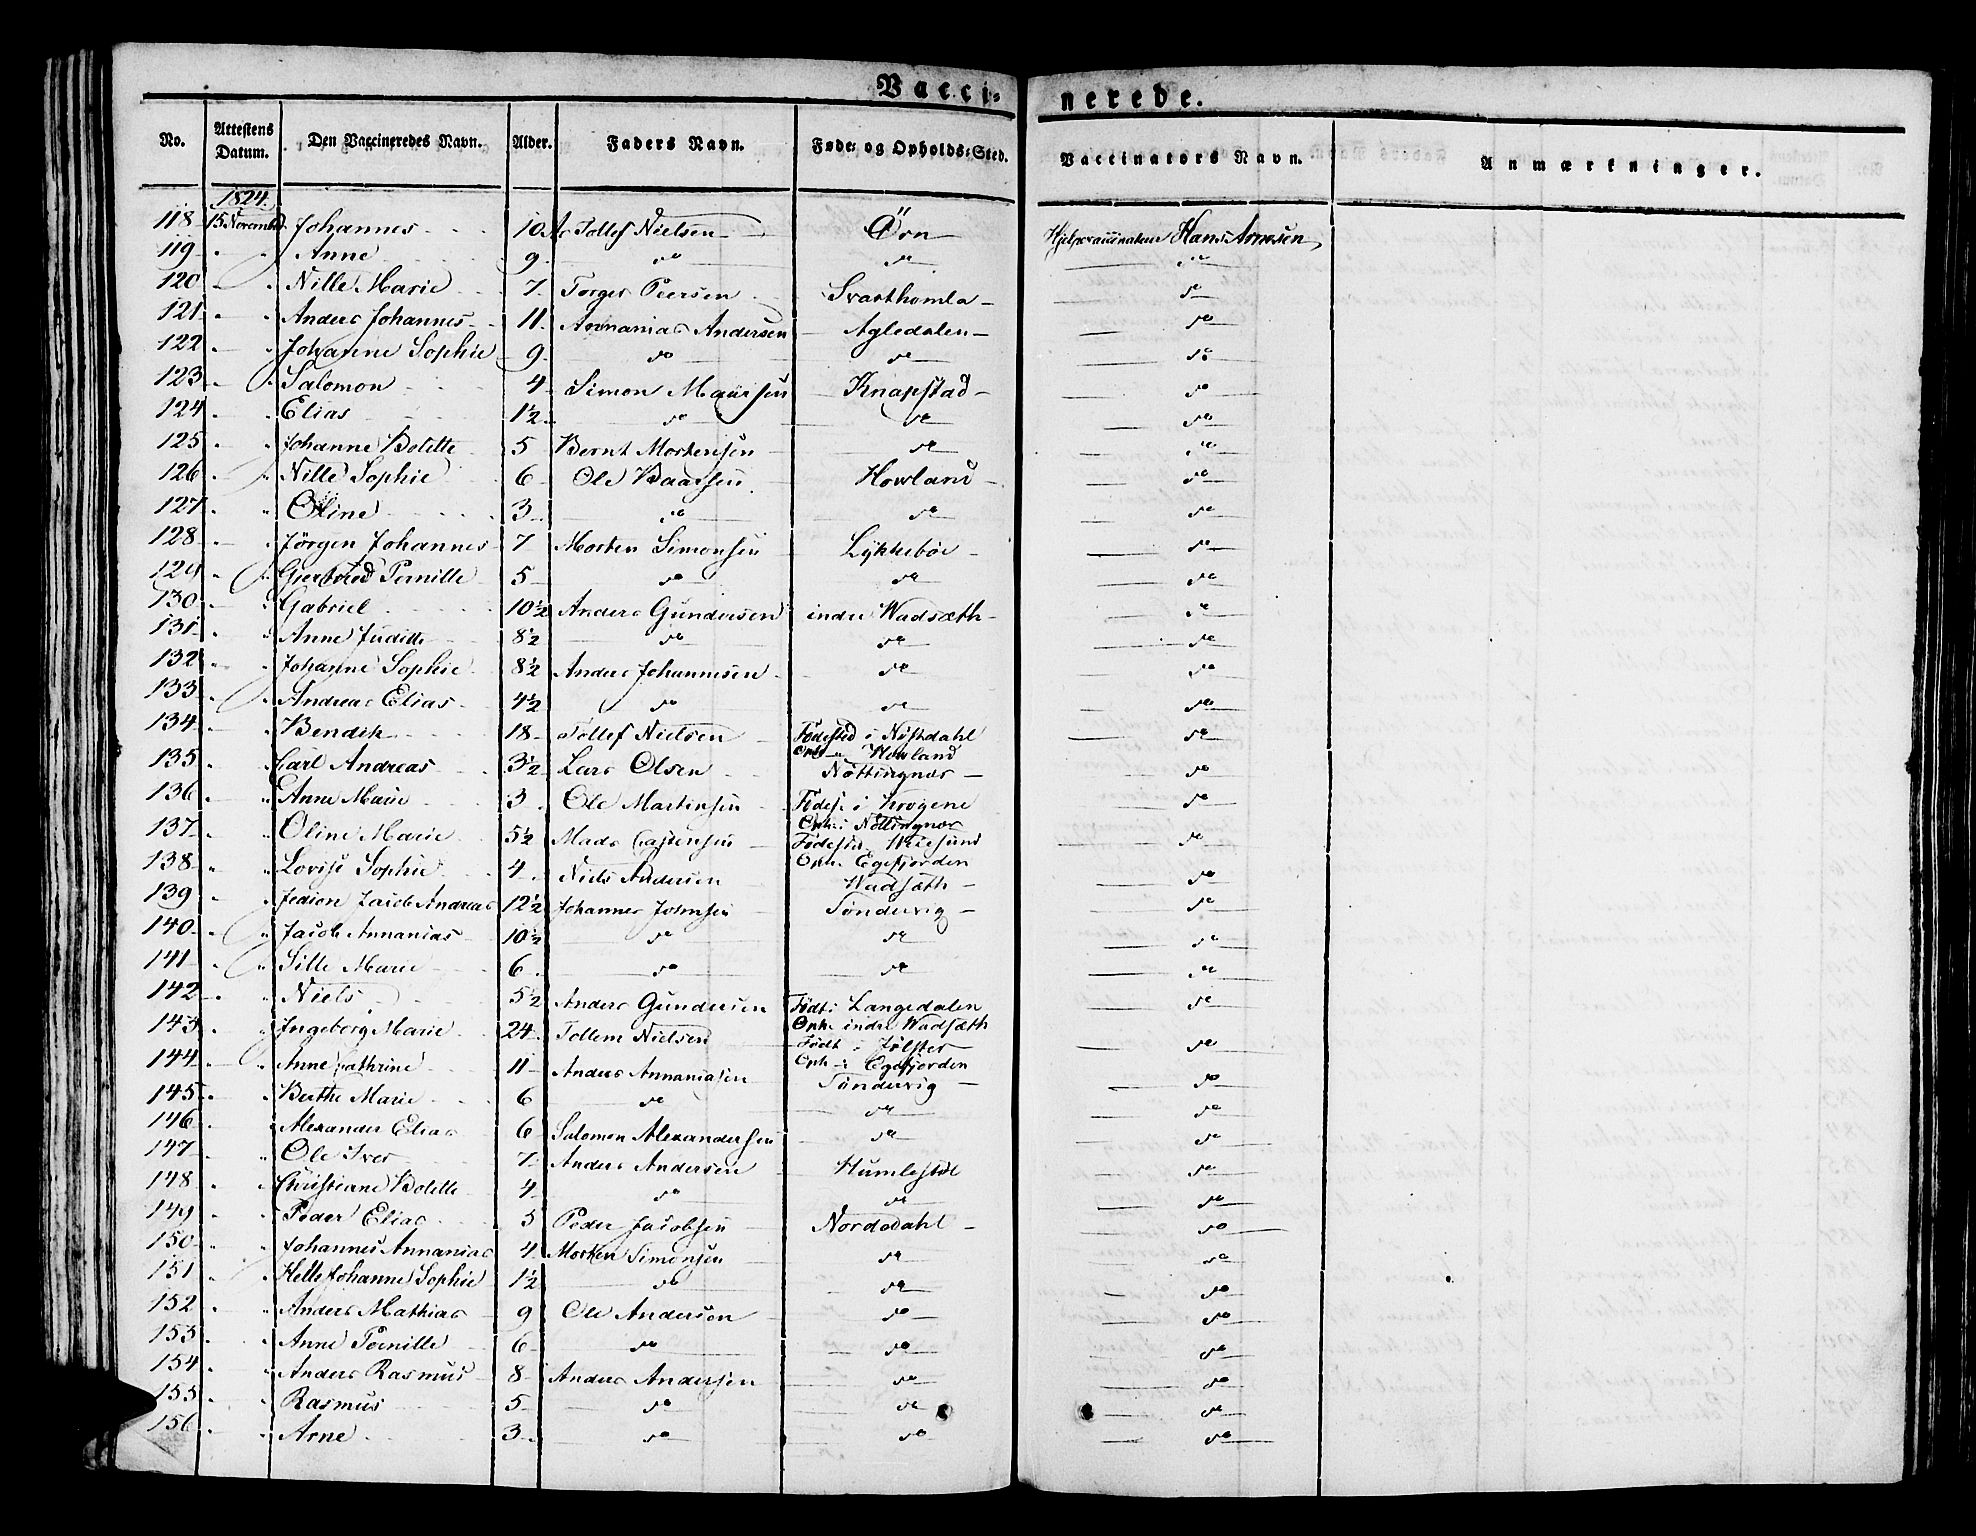 Vacci- nerede.
No. Attestens Datum. Den Vaccineredes Navn. Alder. Faders Navn. Føde- og Opholds-Sted. Vaccinators Navn. Anmærkninger.
1824.
118 15 Novembr. Johannes 10 Tollef Nielsen Örn Hjelpevaccinateur Hans Arnesen
119 " " Anne 9 do do do
120 " " Nille Marie 7 Torger Peersen Svarthomla do
121 " " Anders Johannes 11 Annanias Andersen Agledalen do
122 " " Johanne Sophie 9 do do do
123 " " Salomon 4 Simon Maursen Knapstad do
124 " " Elias 1½ do do do
125 " " Johanne Bolette 5 Bernt Mortensen do do
126 " " Nille Sophie 6 Ole Baarsen Howland do
127 " " Oline 3 do do do
128 " " Jørgen Johannes 7 Morten Simonsen Lykkebøe do
129 " " Giertrud Pernille 5 do do do
130 " " Gabriel 10½ Anders Gundersen indre Wadsæth do
131 " " Anne Juditte 8½ do do do
132 " " Johanne Sophie 8½ Anders Johannesen do do
133 " " Andreas Elias 4½ do do do
134 " " Bendik 18 Tollef Nielsen Fødested i Nøstdahl do
Oph. " Howland
135 " " Carl Andreas 3½ Lars Olsen Nøttingnæs do
136 " " Anne Marie 3 Ole Martinsen Fødest. i Krogene do
Oph. i Nøttingnæs
137 " " Oline Marie 5½ Mads Castensen Fødested do
Oph. Egefjorden
138 " " Lovise Sophie 4 Niels Andersen Wadsæth do
139 " " Jedion Jacob Andreas 12½ Johannes Johnsen Sønderviig do
140 " " Jacob Annanias 10½ do do do
141 " " Sille Marie 6 do do do
142 " " Niels 5½ Anders Gundersen Født i Langedalen do
Oph. indre Wadsæth
143 " " Ingeborg Marie 24 Tollem Nielsen Født i Jølster do
Oph. i Egefjorden
144 " " Anne Cathrine 11 Anders Annaniasen Sønderviig do
145 " " Berthe Marie 6 do do do
146 " " Alexander Elias 6 Salomon Alexandersen do do
147 " " Ole Iver 7 Anders Andersen Humlestøl do
148 " " Christiane Bolette 4 do do do
149 " " Peder Elias 5 Peder Jacobsen Nordedahl do
150 " " Johannes Annanias 4 Morten Simonsen do do
151 " " Helle Johanne Sophie 1½ do do do
152 " " Anders Mathias 9 Ole Anderson do do
153 " " Anne Pernille 6 do do do
154 " " Anders Rasmus 8 Anders Andersen do do
155 " " Rasmus 5 do do do
156 " " Arne 3 do do do